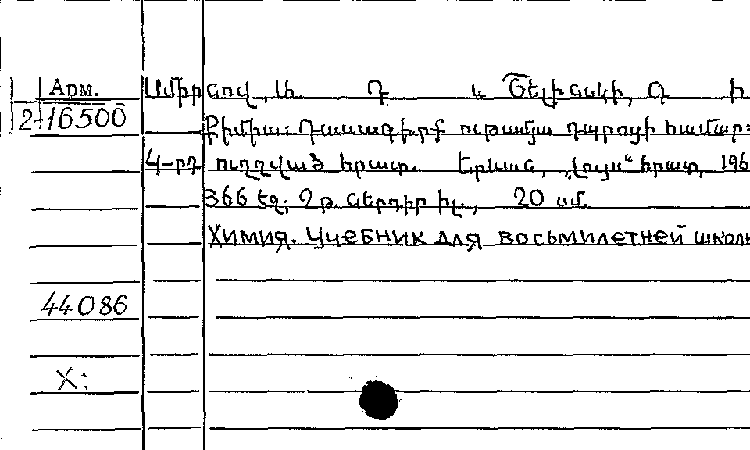 Арм.
2-16500
Ամիրջով, Լն. Դ և Շելինսկի, Գ ի
Քիմիա: Դասագիրք ութամյա դպրոցի համար:
4-րդ ուղղված հրատ. Երևան, „Լույս“ հրատ, 196
366 էջ; 2 թ. ներդիր իլ., 20 սմ.
Химия. Учебник для восьмилетней школы
44086
X: